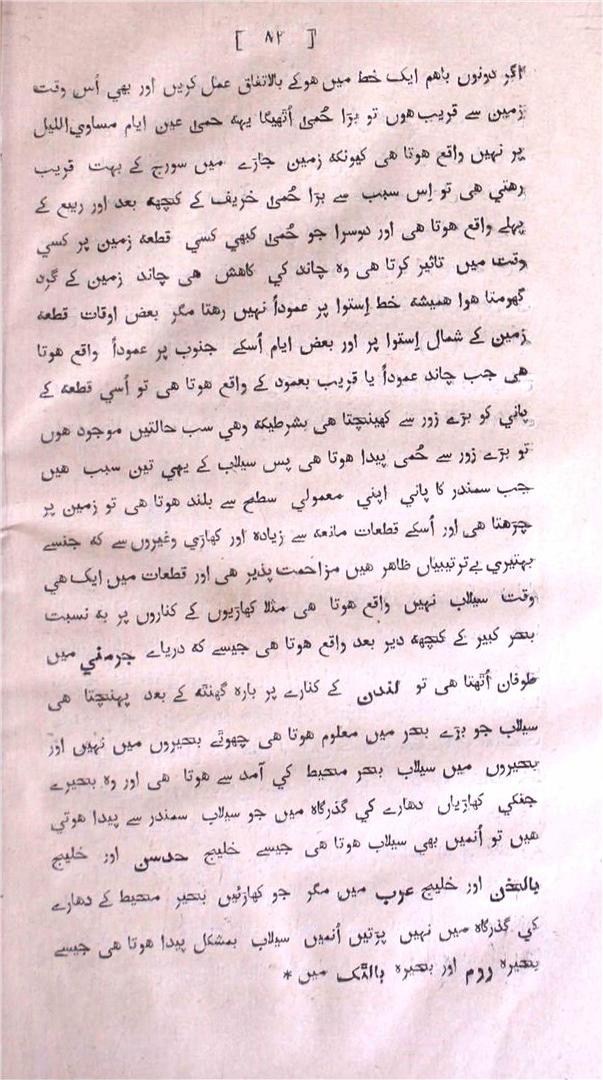 [ ۸۲ ]
اگر دونوں باهم ایک خط میں هوکے بالاتفاق عمل کریں اور بھي اُس وقت
زمین سے قریب هوں تو بڑا حُمیٰ اُٹھیگا یہہ حمیٰ عین ایام مساوي اللیل
پر نہیں واقع هوتا هی کیونکہ زمین جاڑے میں سورج کے بہت قریب
رهتي هی تو اِس سبب سے بڑا حُمیٰ خریف کے کچھہ بعد اور ربیع کے
پہلے واقع هوتا هی اور دوسرا جو حُمیٰ کبھي کسي قطعہ زمین پر کسي
وقت میں تاثیر کرتا هی وہ چاند کي کاهش هی چاند زمین کے گرد
گھومتا هوا همیشہ خط اِستوا پر عموداً نہیں رهتا مگر بعض اوقات قطعہ
زمین کے شمال اِستوا پر اور بعض ایام اُسکے جنوب پر عموداً واقع هوتا
هی جب چاند عموداً یا قریب بعمود کے واقع هوتا هی تو اُسي قطعہ کے
پاني کو بڑے زور سے کھینچتا هی بشرطیکہ وهي سب حالتیں موجود هوں
تو بڑے زور سے حُمی پیدا هوتا هی پس سیلاب کے یہي تین سبب هیں
جب سمندر کا پاني اپني معمولي سطح سے بلند هوتا هی تو زمین پر
چڑهتا هی اور اُسکے قطعات مانعہ سے زیادہ اور کھاڑي وغیروں سے کہ جنسے
بہتیري بےترتیبیاں ظاهر هیں مزاحمت پذیر هی اور قطعات میں ایک هي
وقت سیلاب نہیں واقع هوتا هی مثلا کھاڑیوں کے کناروں پر بہ نسبت
بحر کبیر کے کچھہ دیر بعد واقع هوتا هی جیسے کہ دریاے جرمني میں
طوفان اُٹھتا هی تو لندن کے کنارے پر بارہ گھنٹہ کے بعد پہنچتا هی
سیلاب جو بڑے بحر میں معلوم هوتا هی چھوٹے بحیروں میں نہیں اور
بحیروں میں سیلاب بحر محیط کي آمد سے هوتا هی اور وہ بحیرے
جنکي کھاڑیاں دهارے کي گذرگاہ میں جو سیلاب سمندر سے پیدا هوتي
هیں تو اُنمیں بھي سیلاب هوتا هی جیسے خلیج حدسن اور خلیج
بافن اور خلیج عرب میں مگر جو کھاڑئیں بحیر محیط کے دهارے
کي گذرگاہ میں نہیں پڑتیں اُنمیں سیلاب بمشکل پیدا هوتا هی جیسے
بحیرہ روم اور بحیرہ بالٹک میں *